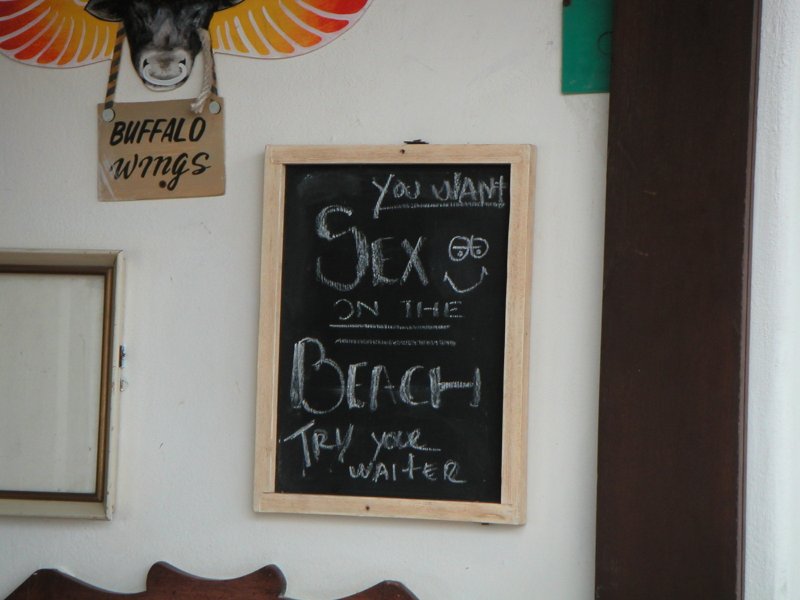 BUFFALO
wings
YOU WANT
SEX
ON THE
BEACH
TRY YOUR
WAITER